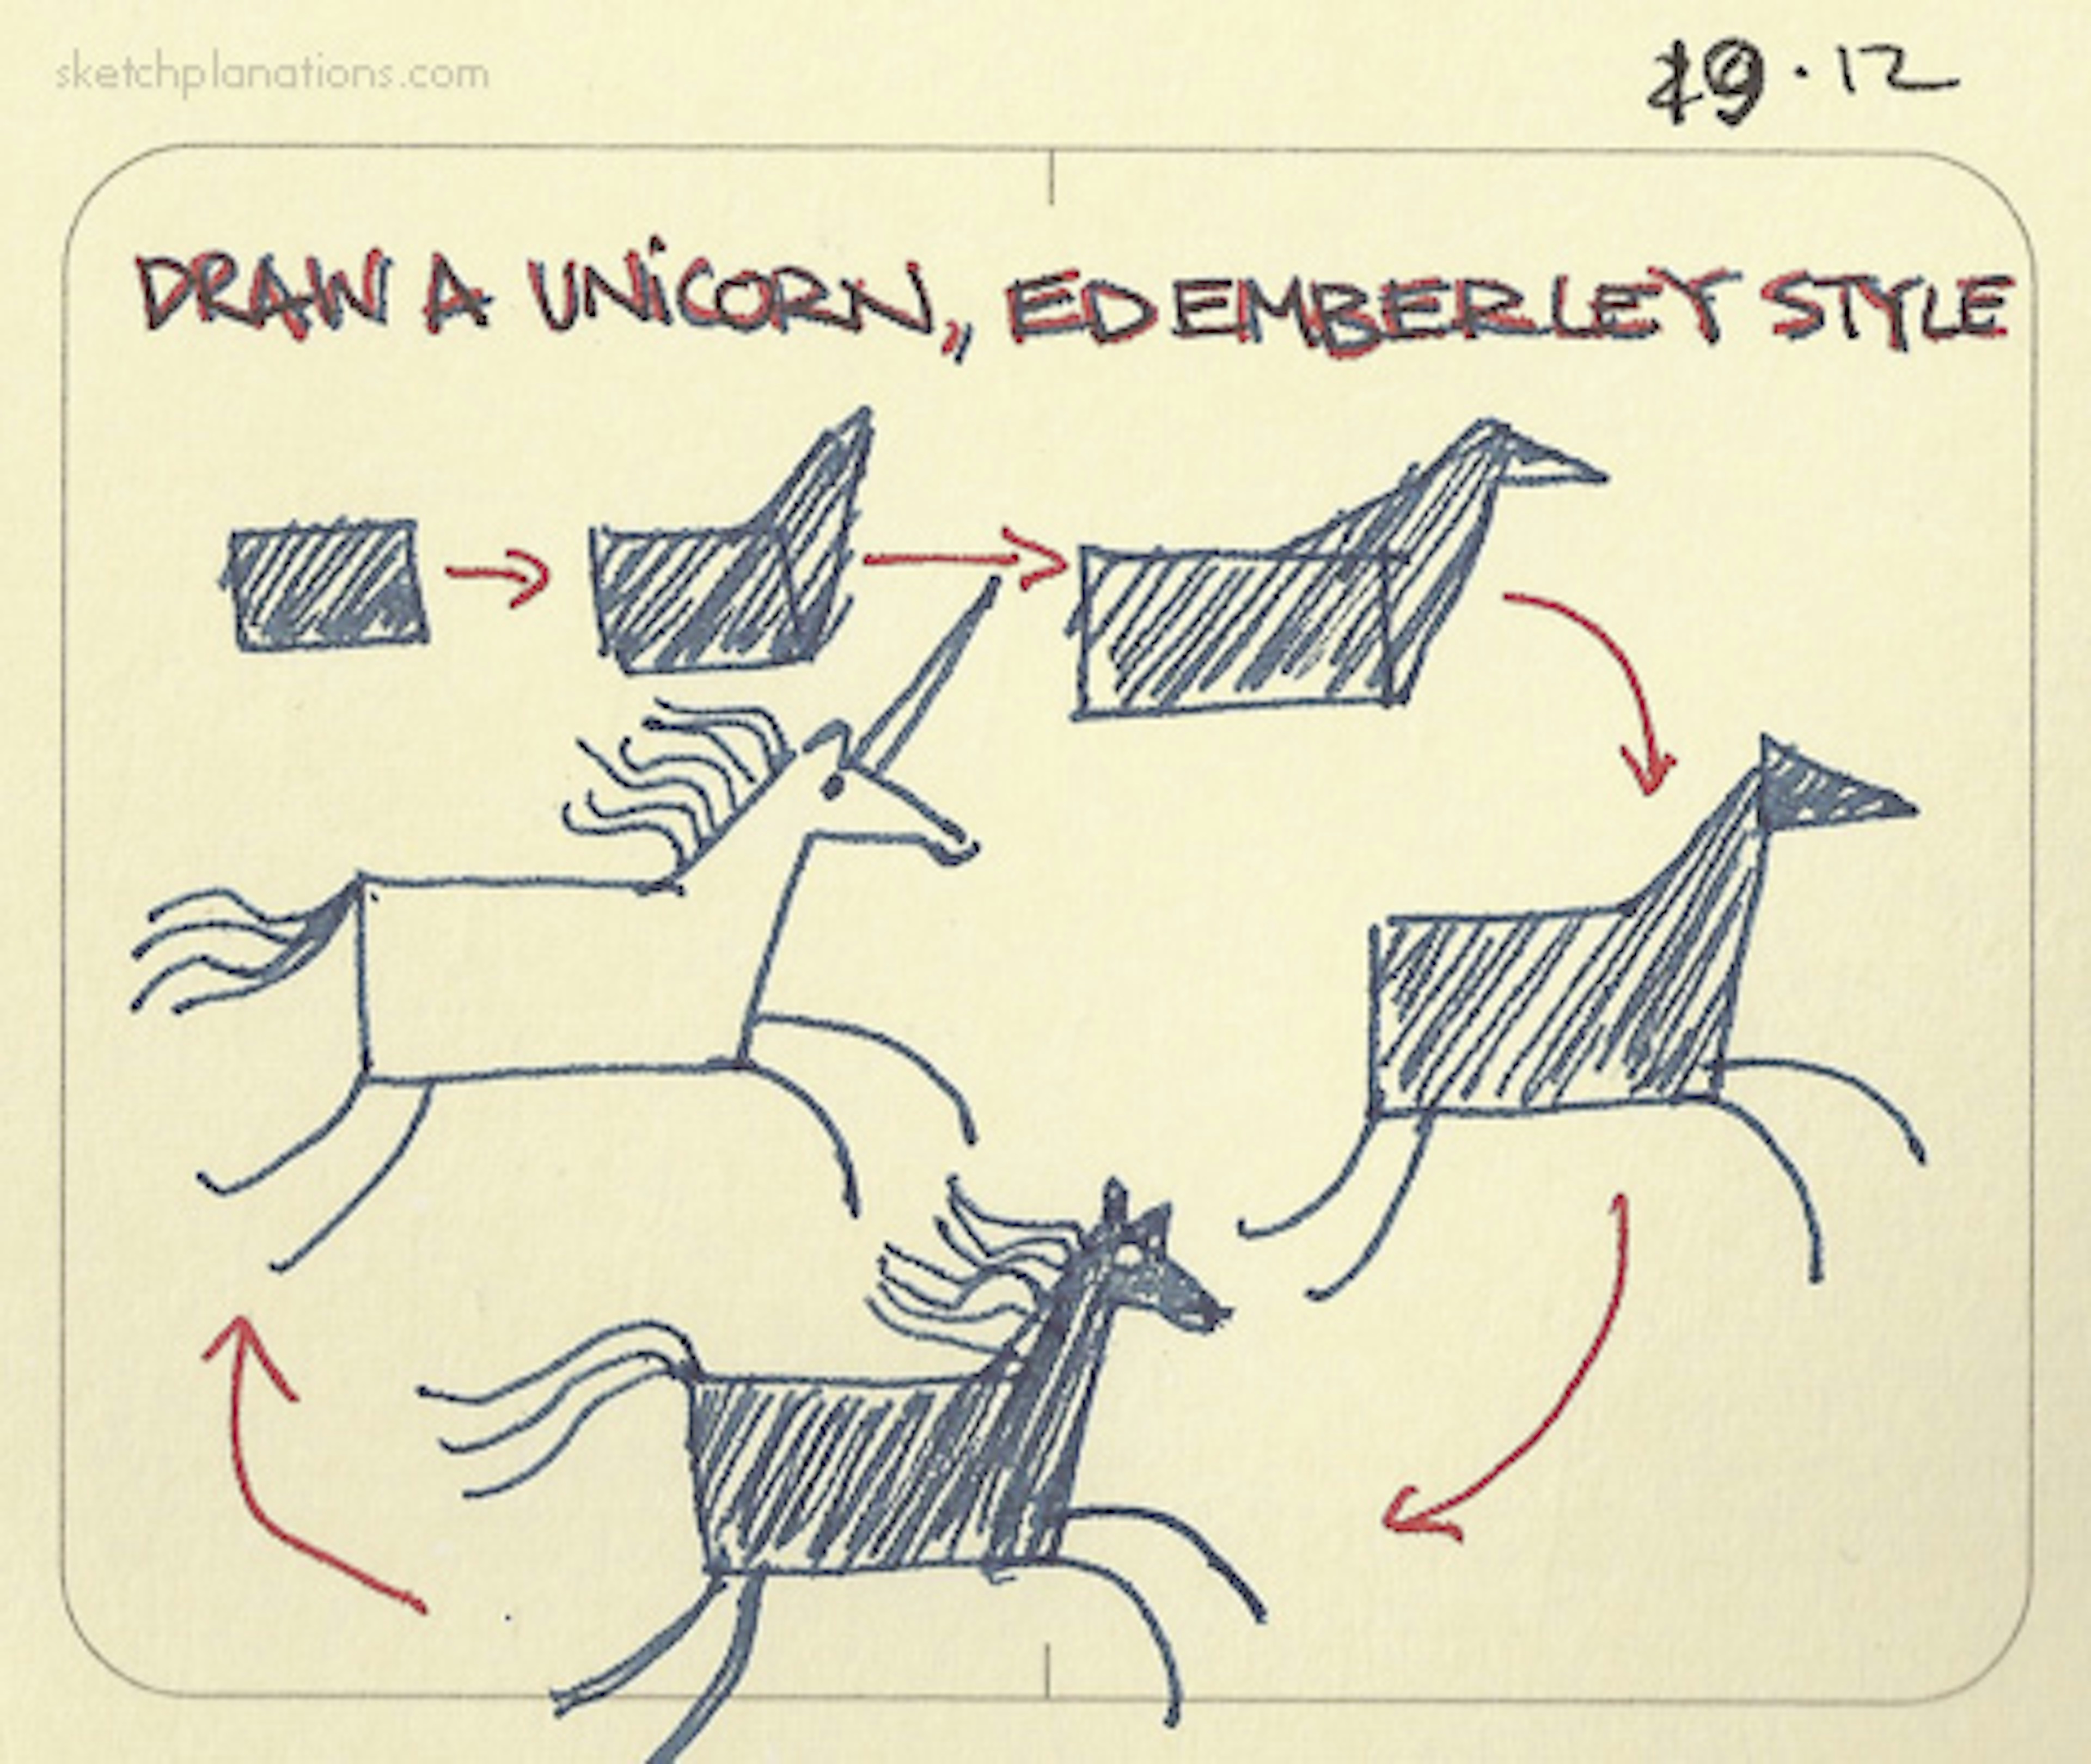 sketchplanations.com
19.12
DRAW A UNICORN, ED EMBERLEY STYLE